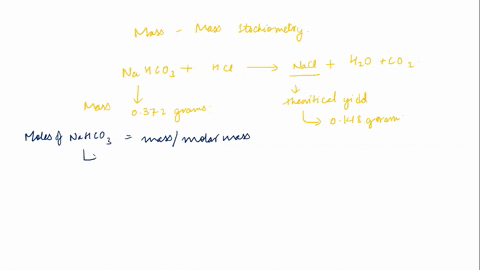 Mass - Mass Stochiometry.
NaHCO3 + HCl → NaCl + H2O + CO2.
Mass 0.372 grams.
theoritical yield
0.148 gram.
Moles of NaHCO3 = mass/molar mass